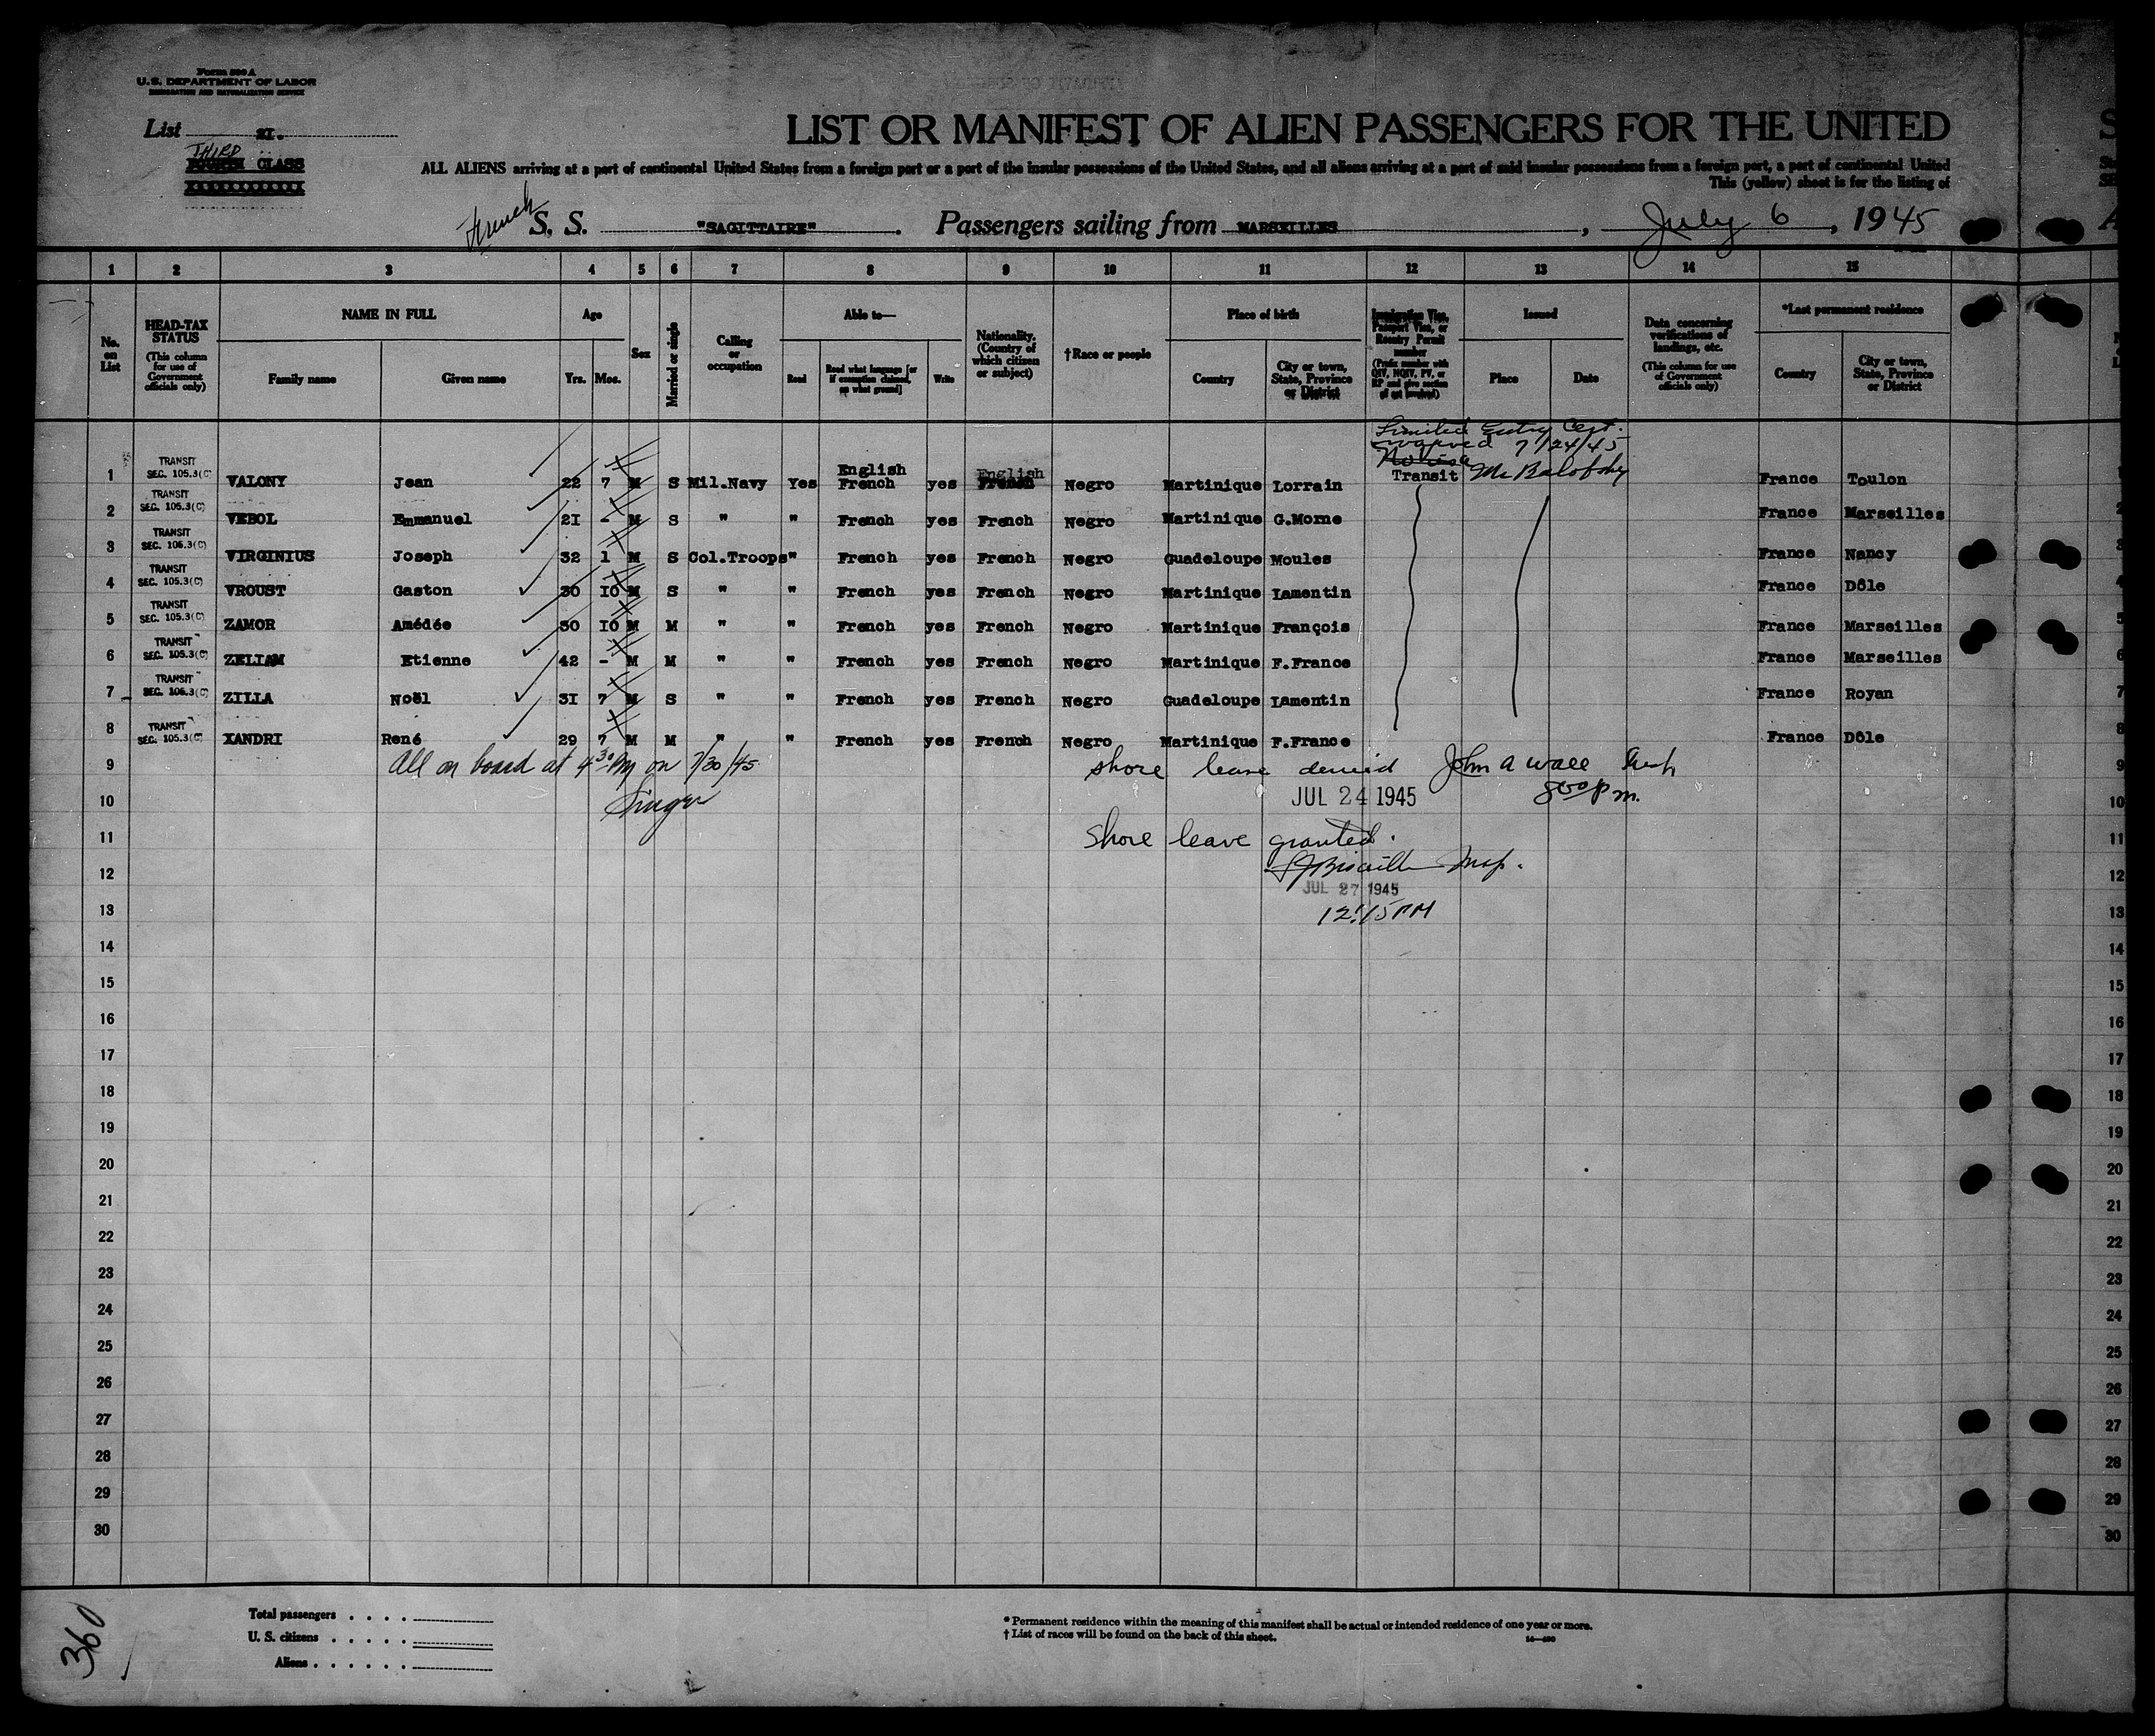 Form 500 A
U.S. DEPARTMENT OF LABOR
IMMIGRATION AND NATURALIZATION SERVICE
List 2I.
THIRD
FOURTH CLASS
LIST OR MANIFEST OF ALIEN PASSENGERS FOR THE UNITED
ALL ALIENS arriving at a port of continental United States from a foreign port or a port of the insular possessions of the United States, and all aliens arriving at a port of said insular possessions from a foreign port, a port of continental United
This (yellow) sheet is for the listing of
French S. S. "SAGITTAIRE". Passengers sailing from MARSEILLES, July 6, 1945
1 2 3 4 5 6 7 8 9 10 11 12 13 14 15
No. on List
HEAD-TAX STATUS (This column for use of Government officials only)
NAME IN FULL Family name Given name
Age Yrs. Mos.
Sex
Married or single
Calling or occupation
Able to— Read Read what language [or if exemption claimed, on what ground] Write
Nationality. (Country of which citizen or subject)
†Race or people
Place of birth Country City or town, State, Province or District
Immigration Visa, Passport Visa, or Reentry Permit number (Prefix number with QIV, NQIV, PV, or RP and give section of act involved)
Issued Place Date
Data concerning verifications of landings, etc. (This column for use of Government officials only)
*Last permanent residence Country City or town, State, Province or District
Limited Entry Cert.
waived 7/24/45
No visa
1 TRANSIT SEC. 105.3(C) VALONY Jean 22 7 M S Mil.Navy Yes English French yes English French Negro Martinique Lorrain Transit France Toulon
2 TRANSIT SEC. 105.3(C) VEBOL Emmanuel 2I - M S " " French yes French Negro Martinique G.Morne France Marseilles
3 TRANSIT SEC. 105.3(C) VIRGINIUS Joseph 32 1 M S Col.Troops " French yes French Negro Guadeloupe Moules France Nancy
4 TRANSIT SEC. 105.3(C) VROUST Gaston 30 I0 M S " " French yes French Negro Martinique Lamentin France Dôle
5 TRANSIT SEC. 105.3(C) ZAMOR Amédée 30 I0 M M " " French yes French Negro Martinique François France Marseilles
6 TRANSIT SEC. 105.3(C) ZELIAM Etienne 42 - M M " " French yes French Negro Martinique F.France France Marseilles
7 TRANSIT SEC. 105.3(C) ZILLA Noël 3I 7 M S " " French yes French Negro Guadeloupe Lamentin France Royan
8 TRANSIT SEC. 105.3(C) XANDRI René 29 7 M M " " French yes French Negro Martinique F.France France Dôle
9 All on board at 4 30 PM on 7/30/45 shore leave denied John A Wall
10 Singer JUL 24 1945 8 00 p m.
11 Shore leave granted.
12 Insp.
JUL 27 1945
13 12:15 PM
14
15
16
17
18
19
20
21
22
23
24
25
26
27
28
29
30
Total passengers
U. S. citizens
Aliens
* Permanent residence within the meaning of this manifest shall be actual or intended residence of one year or more.
† List of races will be found on the back of this sheet.
360